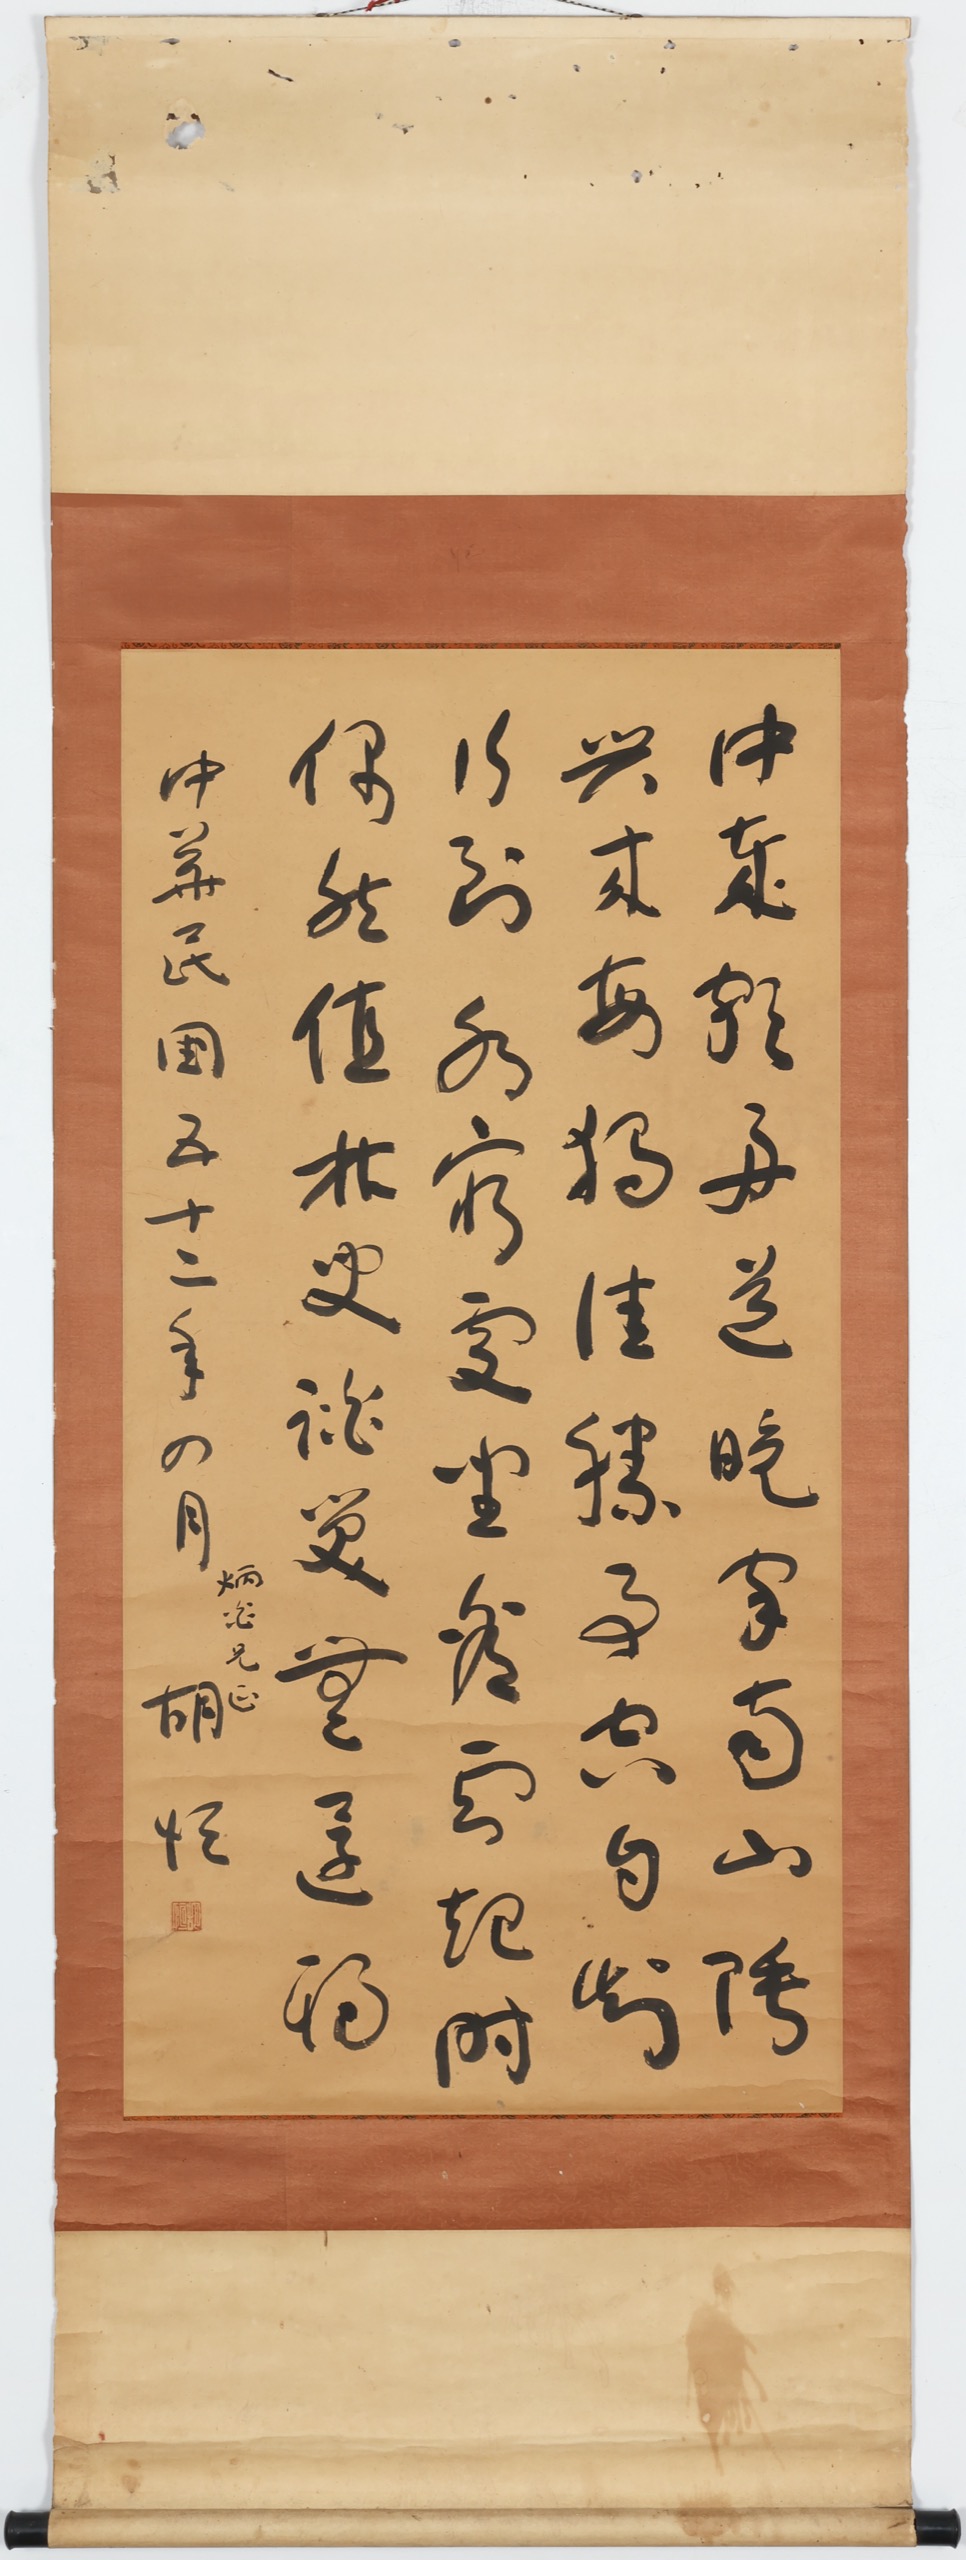 中歲頗好道晚家南山陲
興來每獨往勝事空自知
行到水窮處坐看雲起時
偶然值林叟談笑無還期
中華民國五十二年四月
炳兄正
胡恆